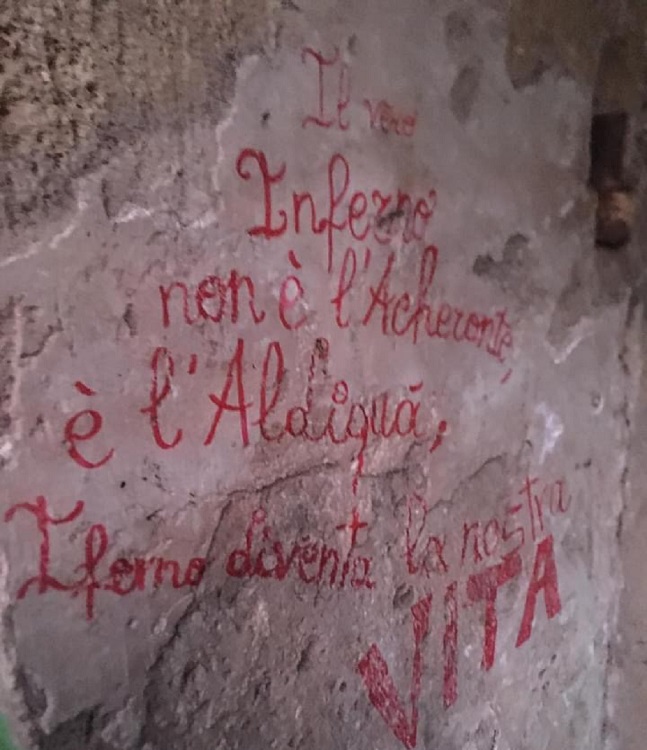 Il vero
Inferno
non è l'Acheronte,
è l'Aldiquà,
Iferno diventa la nostra
VITA